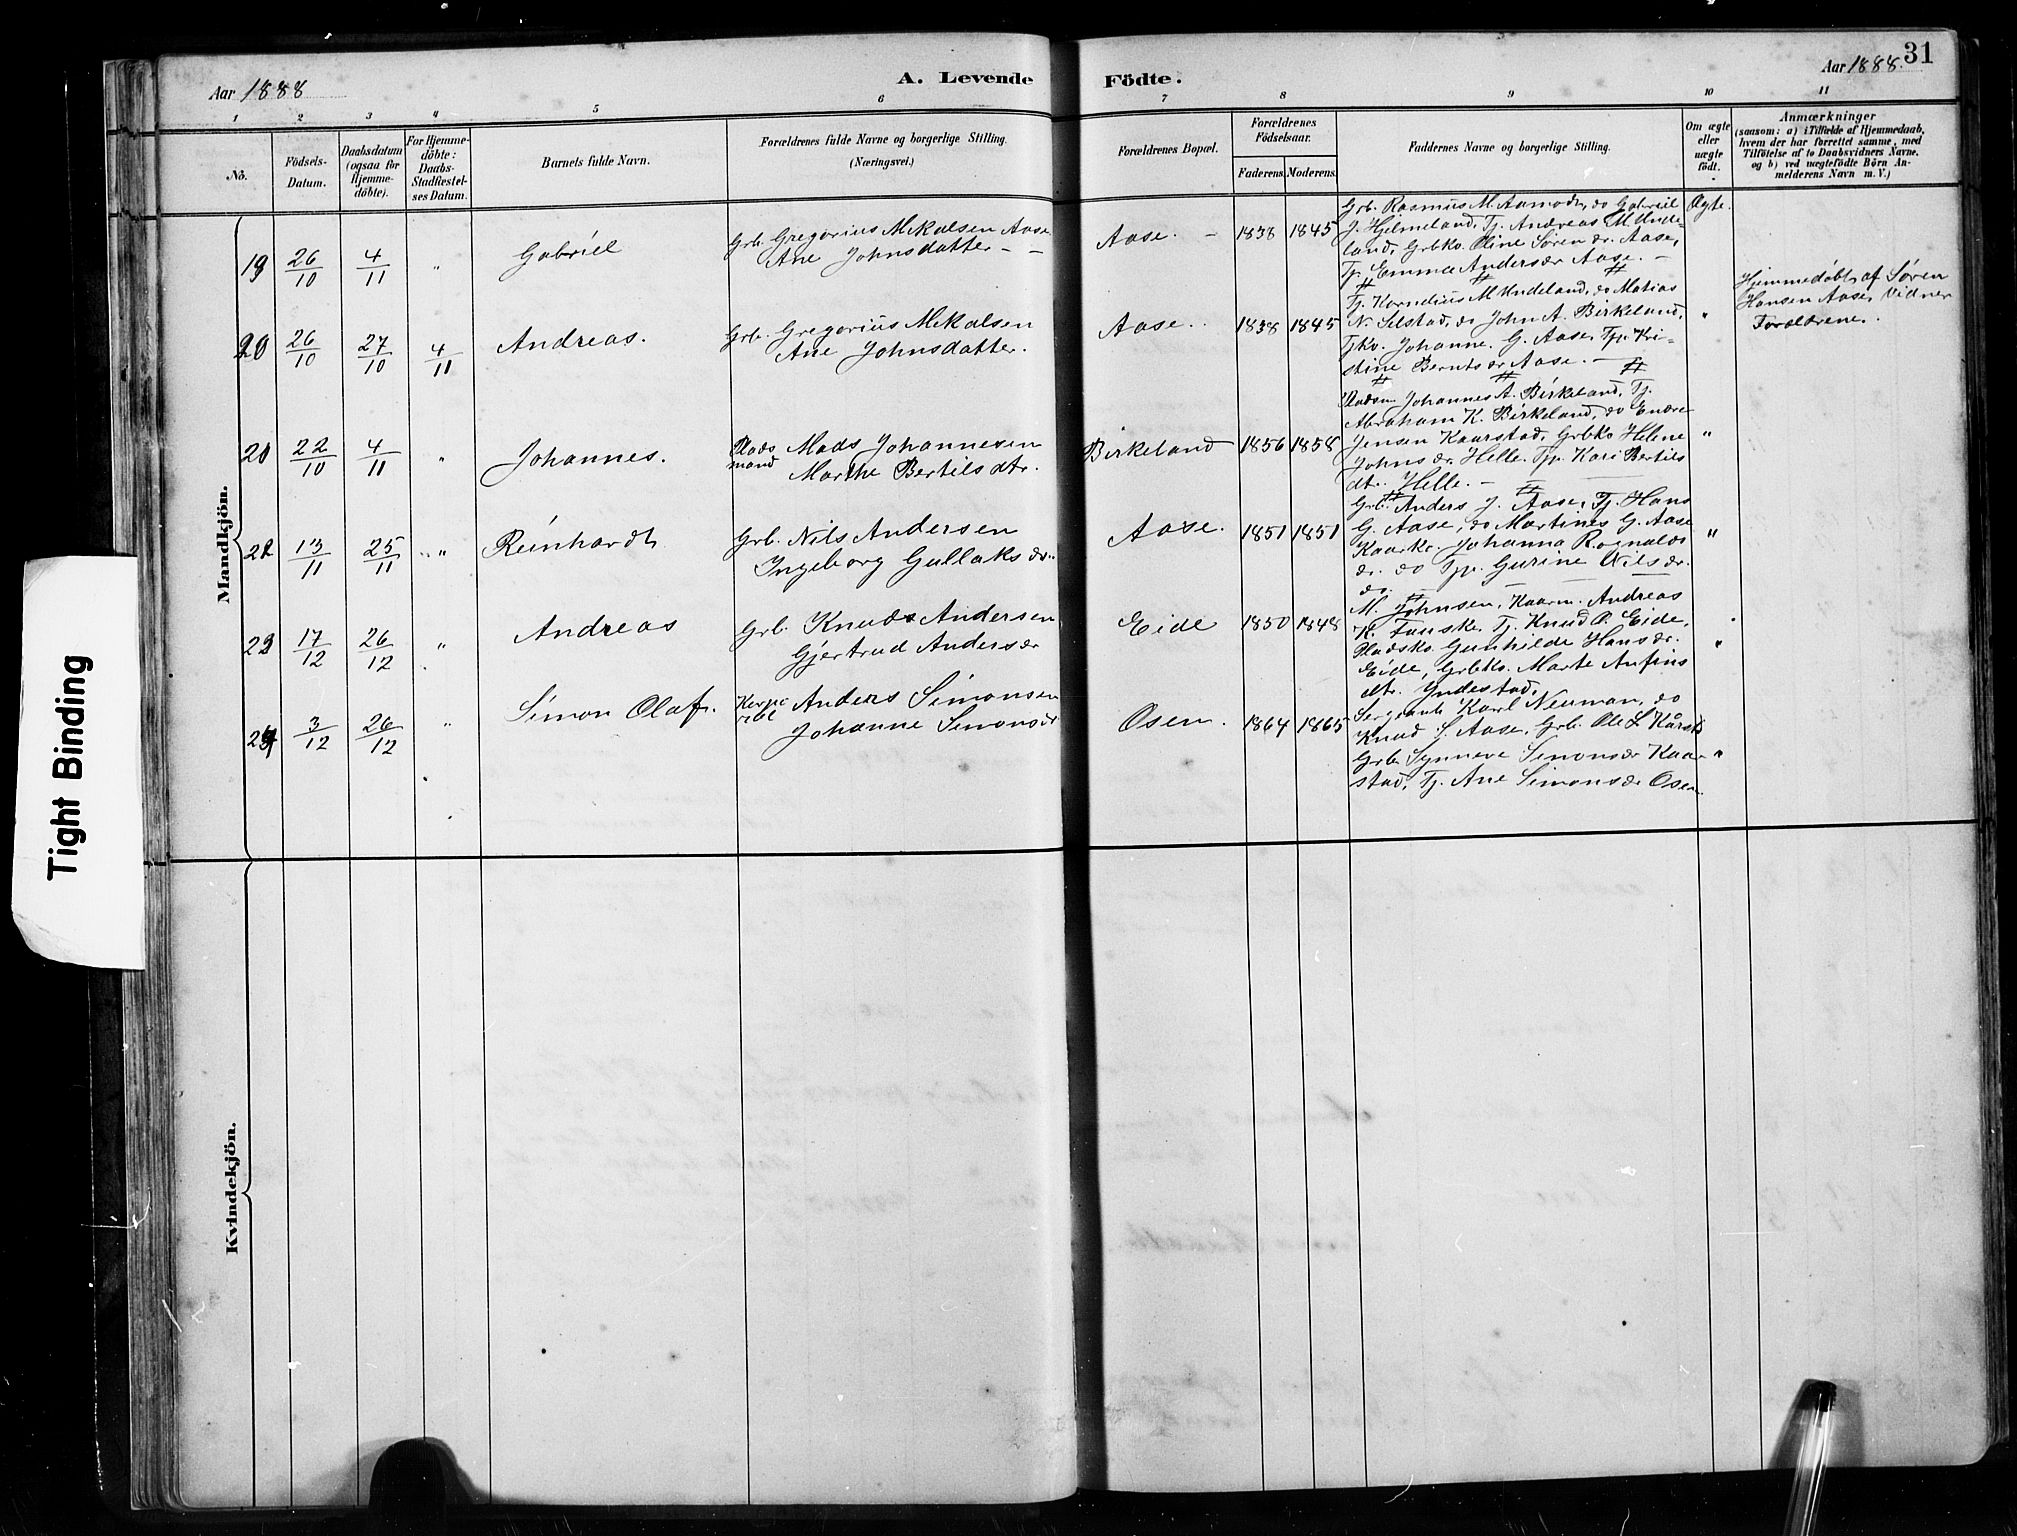 31
Aar 1888
A. Levende Födte.
Aar 1888.
1 2 3 4 5 6 7 8 9 10 11
No.
Födsels-
Datum.
Daabsdatum
(ogsaa for
Hjemme-
döbte).
For Hjemme-
döbte:
Daabs-
Stadfæstel-
ses Datum.
Barnets fulde Navn.
Forældrenes fulde Navne og borgerlige Stilling.
(Næringsvei.)
Forældrenes Bopæl.
Forældrenes
Födselsaar.
Faderens. Moderens.
Faddernes Navne og borgerlige Stilling.
Om ægte
eller
uægte
født.
Anmærkninger
(saasom: a) i Tilfælde af Hjemmedaab,
hvem der har forrettet samme, med
Tilföielse af to Daabsvidners Navne.
og b) ved uægtefödte Börn An-
melderens Navn m. V.)
Mandkjön.
19 26/10 4/11 " Gabriel
Grb. Gregorius Mikalsen Aase
Ane Johnsdatter —
Aase. – 1838 1845
Grb. Rasmus M. Aamodt, do Gabriel
J. Hjelmeland, Tj. Andreas M Unde-
land, Grbko. Oline Søren dr. Aase,
Tp. Emma Andersdr Aase. –
Ægte.
20 26/10 27/10 4/11 Andreas.
Grb. Gregorius Mikalsen
Ane Johnsdatter.
Aase. 1838 1845
Tj. Kornelius M Undeland, do Matias
N. Selstad, do John A. Birkeland,
Tpko. Johanne. G. Aase, Tp. Kri-
stine Bernts dr Aase. –
"
Hjemmedøbt af Søren
Hansen Aase, Vidner
Forældrene.
21 22/10 4/11 " Johannes.
Plads
mand
Mads Johannesen
Marthe Bertils dtr.
Birkeland 1856 1858
Pladsm Johannes A. Birkeland, Tj.
Abraham K. Birkeland, do Endre
Jensen Kaarstad, Grbko Helene
Johns dr. Helle. Tp. Kari Bertils
dt. Helle. –
"
22 13/11 25/11 " Reinhardt
Grb. Nils Andersen
Ingeborg Gullaks dr.
Aase. 1851 1851
Grb. Anders J. Aase, Tj. Hans
G. Aase, do Martines G. Aase
Kaarko. Johanna Rognalds
dr. do Tp. Gurine Nils dr.
do.
"
23 17/12 26/12 " Andreas
Grb. Knuds Andersen
Gjertrud Andersdr
Eide 1850 1848
M. Johnsen, Kaarm. Andreas
K. Fauske, Tj. Knud A. Eide,
Pladsko. Gunhilde Hansdr.
Eide, Grbko. Marte Anfins
dtr. Yndestad,
"
24 3/12 26/12 " Simon Olaf.
Anders Simonsen
Johanne Simonsdr
Osen. 1864 1865
Sergeant Karl Neuman, do
Knud S. Aase, Grb. Ole L Kårsta
Grb. Synneve Simonsdr Kaar-
stad, Tj. Ane Simonsdr Osen.
"
Kvindekjön.
Tight Binding